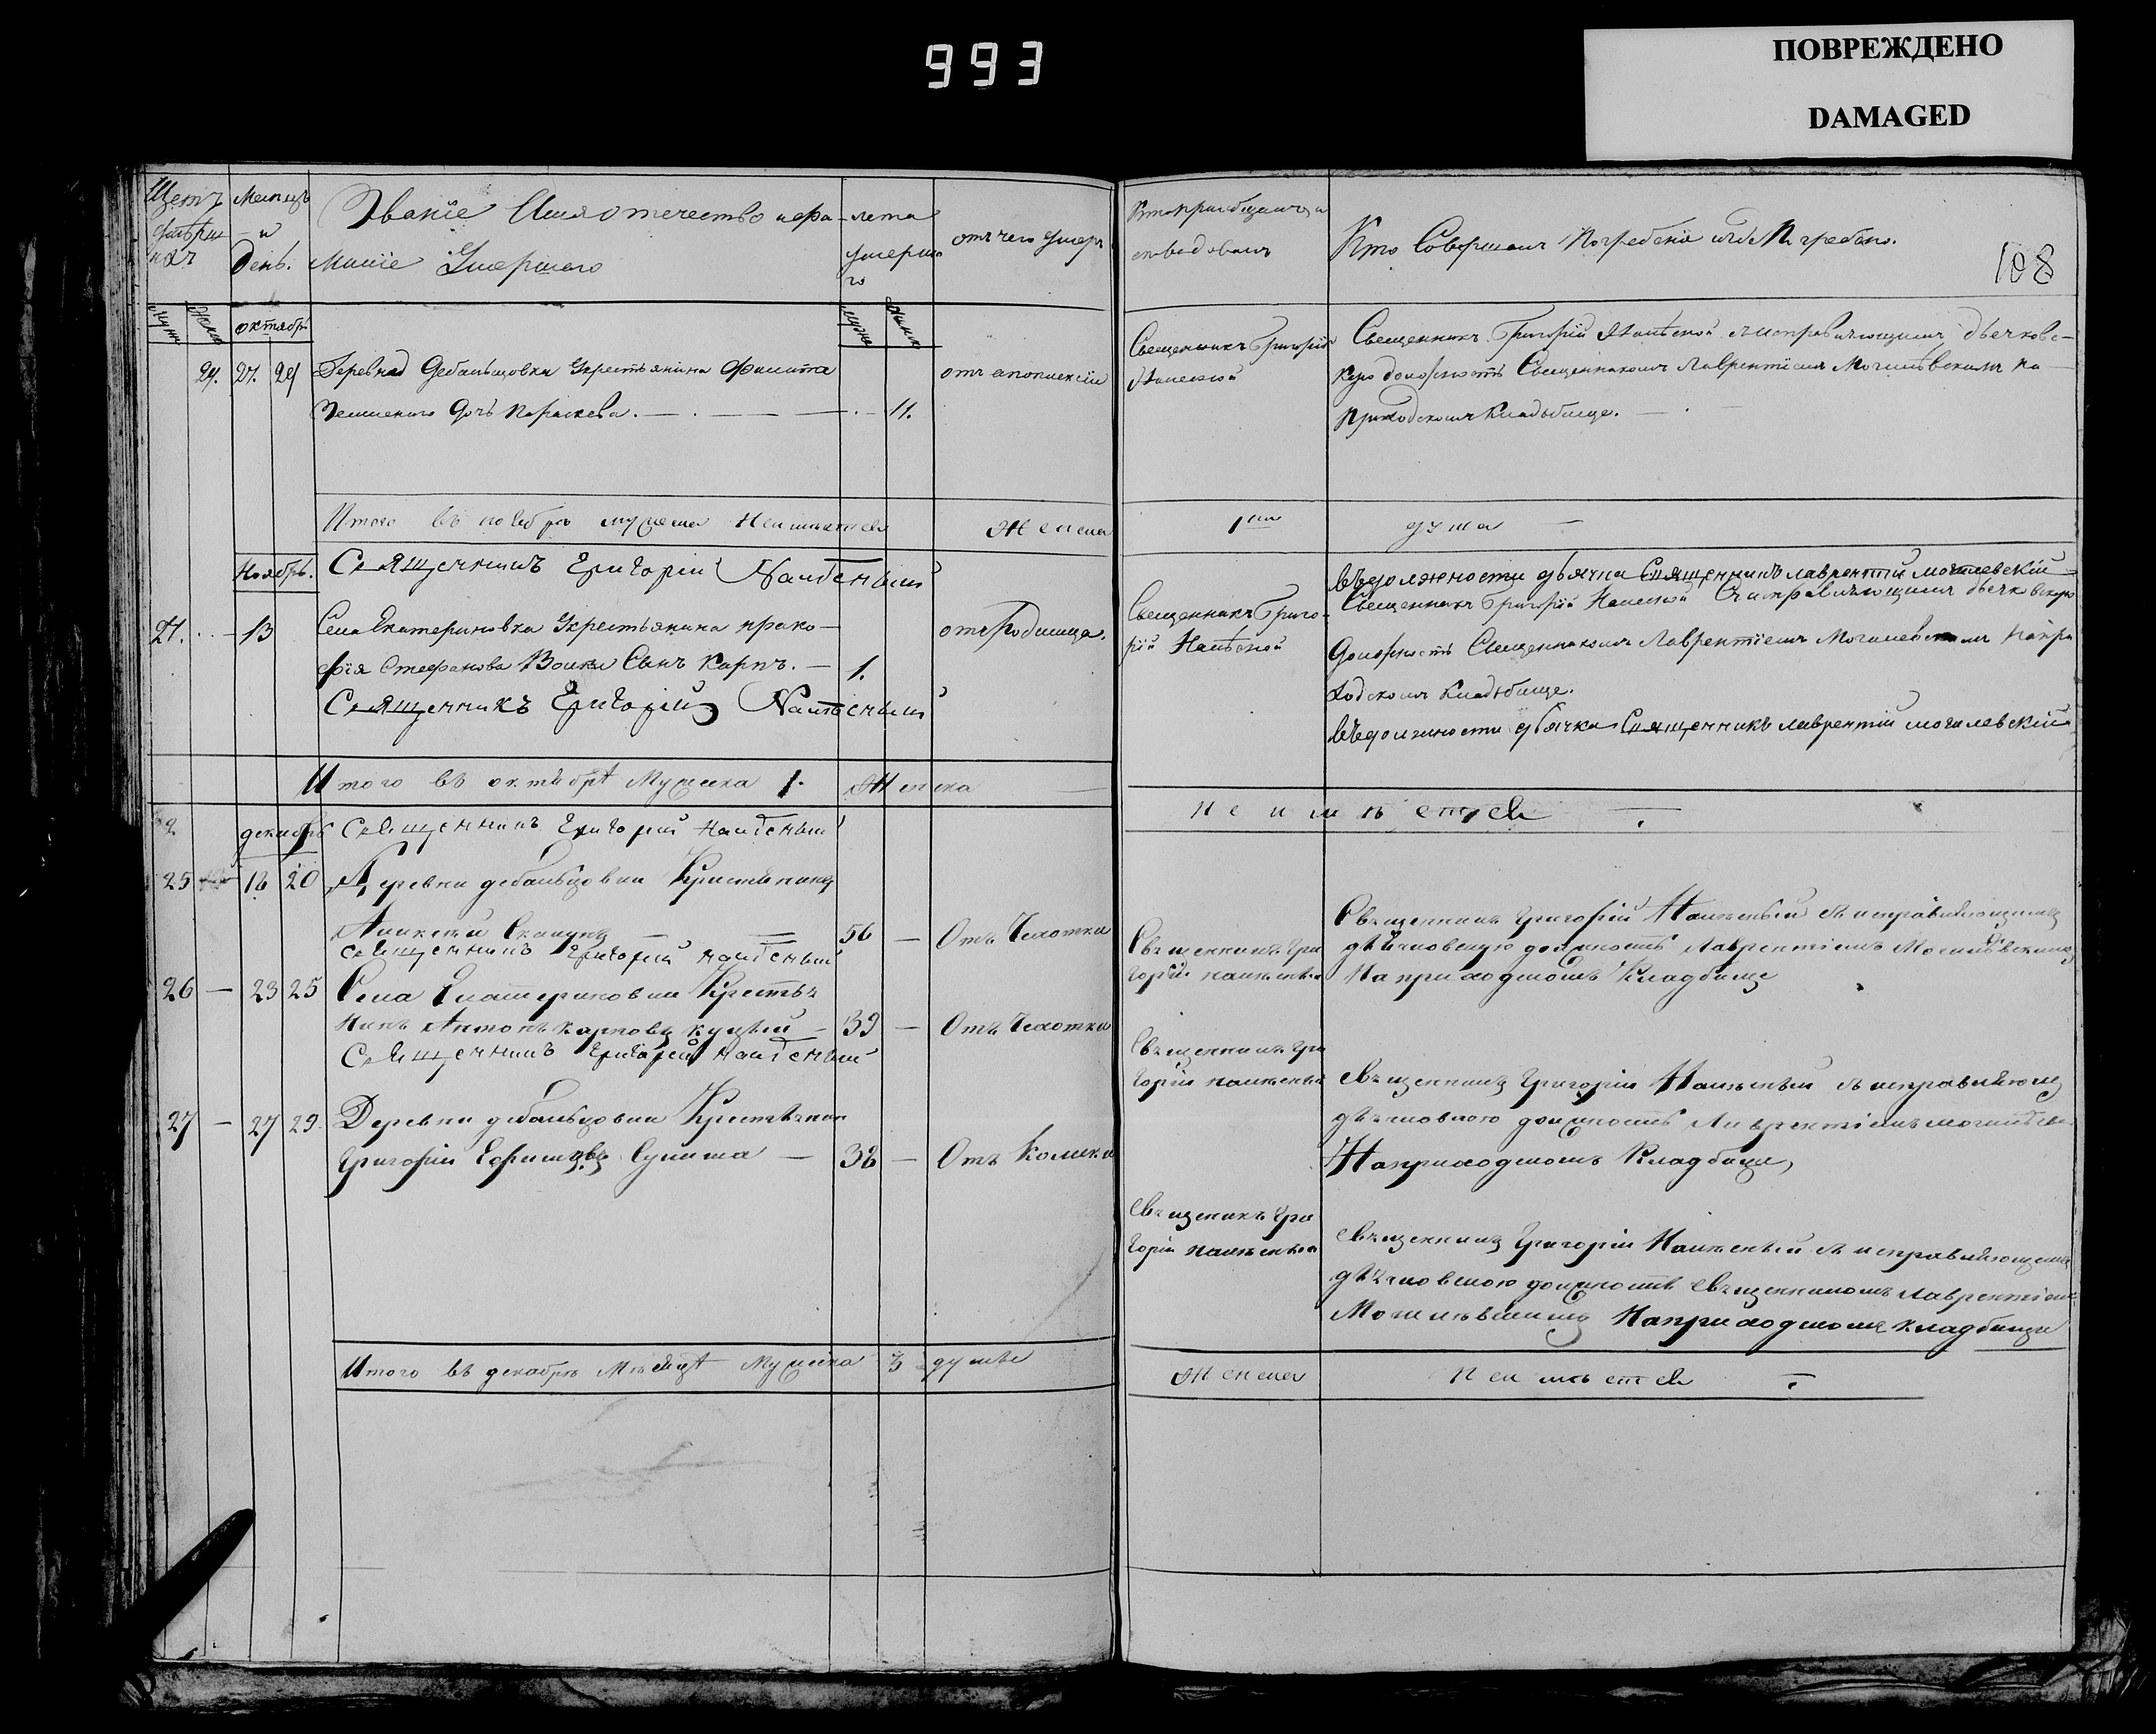 993
ПОВРЕЖДЕНО
DAMAGED
108
Щетъ
умерш
ихъ
Месяцъ
и
день.
Званіе Имя отечество и фа-
миліе Умершаго
лета
умерша
го
отъ чего умеръ
Кто приобщалъ и
споведовалъ
Кто Совершалъ Погребеніе и где Погребено.
мужс
женс
октябрь
мужс
женс
24. 27. 29
Деревна Дебальцовки Крестьянина Филипа
дочь Параскева. 11.
отъ апоплексіи
Священникъ Григорій
Священникъ Григорій съ исправляющимъ дьячковс-
кую должность Священникомъ Лаврентіемъ Могилевскимъ на
Приходскомъ Кладбище.
Итого въ ноябре мужеска Неимеется
Женска
1на
душа
Ноябрь.
Священникъ Григорій
въ должности дьячка Священникъ лаврентій могилевскій
21. 13
Села Екатериновка Крестьянина проко-
фія Стефанова Сынъ Карпъ. 1.
отъ Родимца.
Священникъ Григо-
рій
Священникъ Григорій Съ исправляющимъ дьячковскую
Должность Священникомъ Лаврентіемъ Могилевскимъ На при
ходскомъ Кладбище.
Священникъ Григорій
въ должности дьячка Священникъ лаврентій могилевскій
Итого въ октябре Мужеска 1. Женска
неимеется
декабрь
Священникъ Григорій
25 18 20
Деревни дебальцовки Крестьянинъ
56 Отъ Чахотки
Священникъ Гри
горій
Священникъ Григорій съ исправляющимъ
дьячковскую должность Лаврентіемъ Могилевскимъ
На приходскомъ Кладбище
Священникъ Григорій
26 23 25
Села Екатериновки Крестья
нинъ Антонъ карповъ 39 Отъ Чахотки
Священникъ Григорій
Священникъ Гри
горій
Священникъ Григорій съ исправляющ
дьячковскою должность Лаврентіемъ
На приходскомъ Кладбище,
27 27 29
Деревни дебальцовки Крестьянин
Григорій Ефимовъ 38 Отъ Колики
Священикъ Гри
горій
Священникъ Григорій съ исправляющимъ
дьячковскою должность Священникомъ Лаврентіемъ
Могилевскимъ На приходскомъ кладбище
Итого въ декабре Месяце Мужеска 3 души
Женска
Неимеется